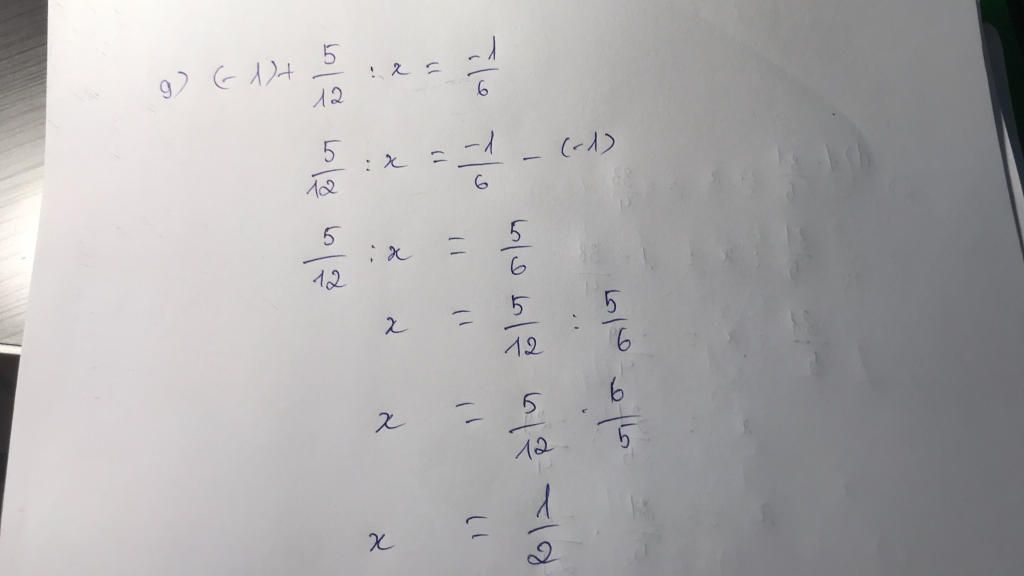 g) (-1) + 5/12 : x = -1/6
5/12 : x = -1/6 - (-1)
5/12 : x = 5/6
x = 5/12 : 5/6
x = 5/12 · 6/5
x = 1/2